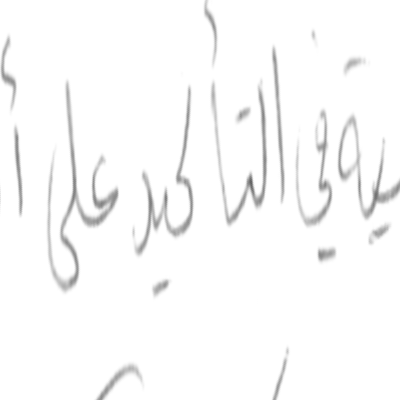 ية في التأكيد على أ